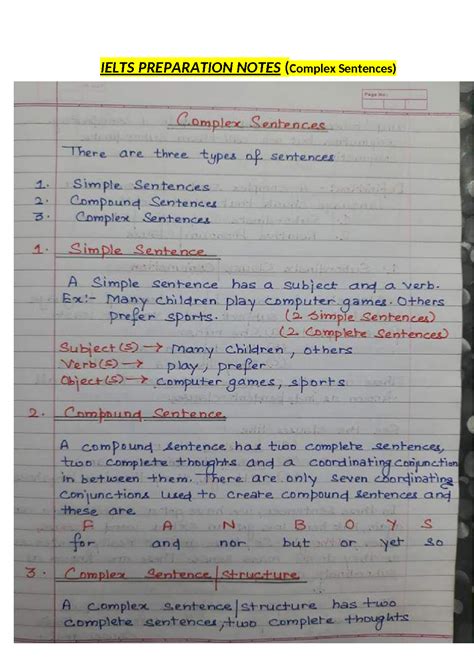 IELTS PREPARATION NOTES (Complex Sentences)
Page No.:
Complex Sentences
There are three types of sentences
1. Simple Sentences
2. Compound Sentences
3. Complex Sentences
1. Simple Sentence
A Simple sentence has a subject and a verb.
Ex:- Many children play computer games. Others
prefer sports. (2 Simple Sentences)
(2 Complete Sentences)
Subject(s) → Many children, others
Verb(s) → play, prefer
Object(s) → computer games, sports
2. Compound Sentence
A compound sentence has two complete sentences,
two complete thoughts and a coordinating conjunction
in between them. There are only seven coordinating
conjunctions used to create compound sentences and
these are
F A N B O Y S
for and nor but or yet so
3. Complex Sentence/Structure
A complex sentence/structure has two
complete sentences, two complete thoughts